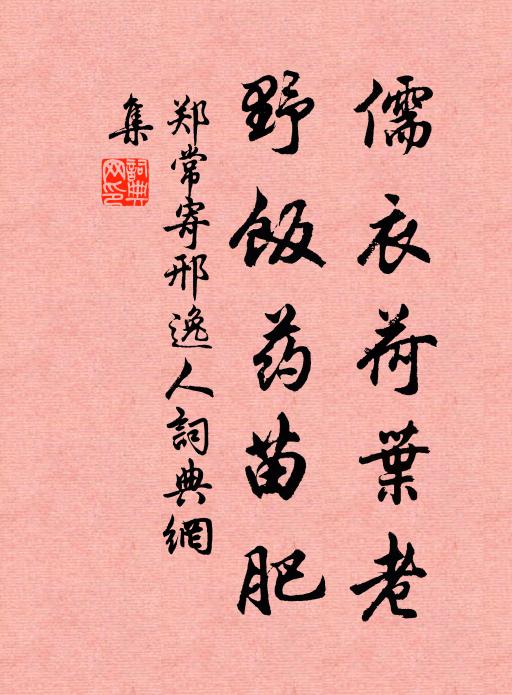 儒衣荷葉老
野飯药苗肥
郑常寄邢逸人詞典網
集
詞典网印